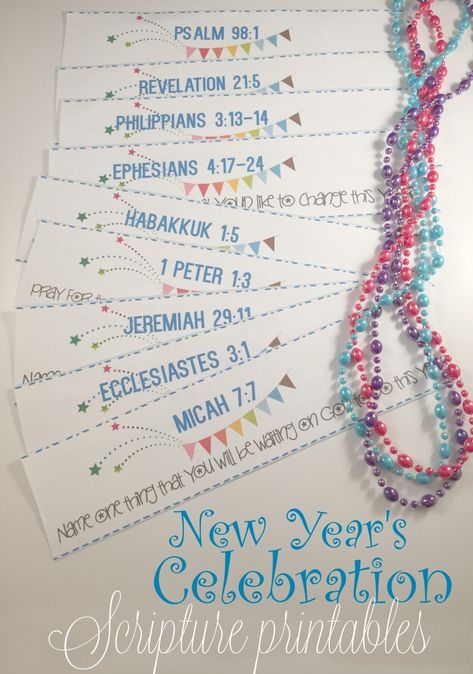 PSALM 98:1
REVELATION 21:5
PHILIPPIANS 3:13-14
EPHESIANS 4:17-24
YOU'D LIKE TO CHANGE THIS
HABAKKUK 1:5
1 PETER 1:3
PRAY FOR
JEREMIAH 29:11
Name
ECCLESIASTES 3:1
MICAH 7:7
Name one thing that you will be waiting on God to do this
New Year's
Celebration
Scripture printables